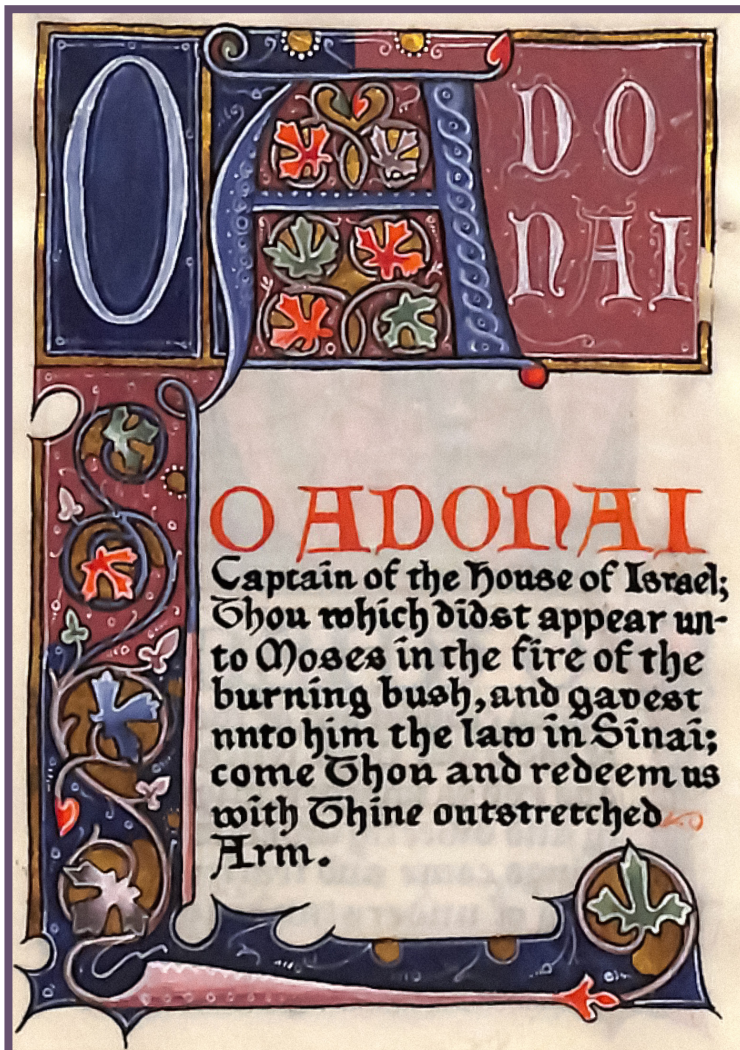 O ADO
NAI
O ADONAI
Captain of the House of Israel;
Thou which didst appear un-
to Moses in the fire of the
burning bush, and gavest
unto him the law in Sinai;
come Thou and redeem us
with Thine outstretched
Arm.